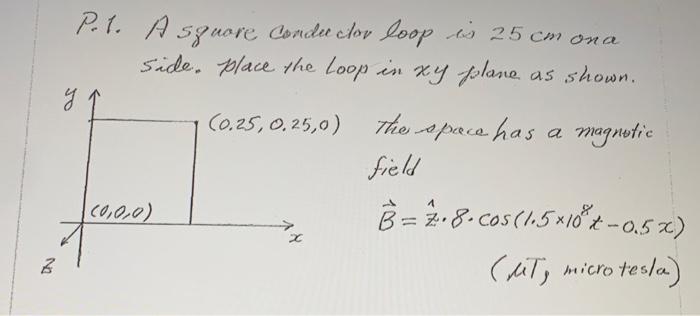 P.1. A square conductor loop is 25 cm on a
side. place the loop in xy plane as shown.
y
(0.25, 0.25, 0)
The space has a magnetic
field
(0,0,0)
x
z
B⃗ = ẑ·8·cos(1.5×10⁸t − 0.5x)
(μT, micro tesla)